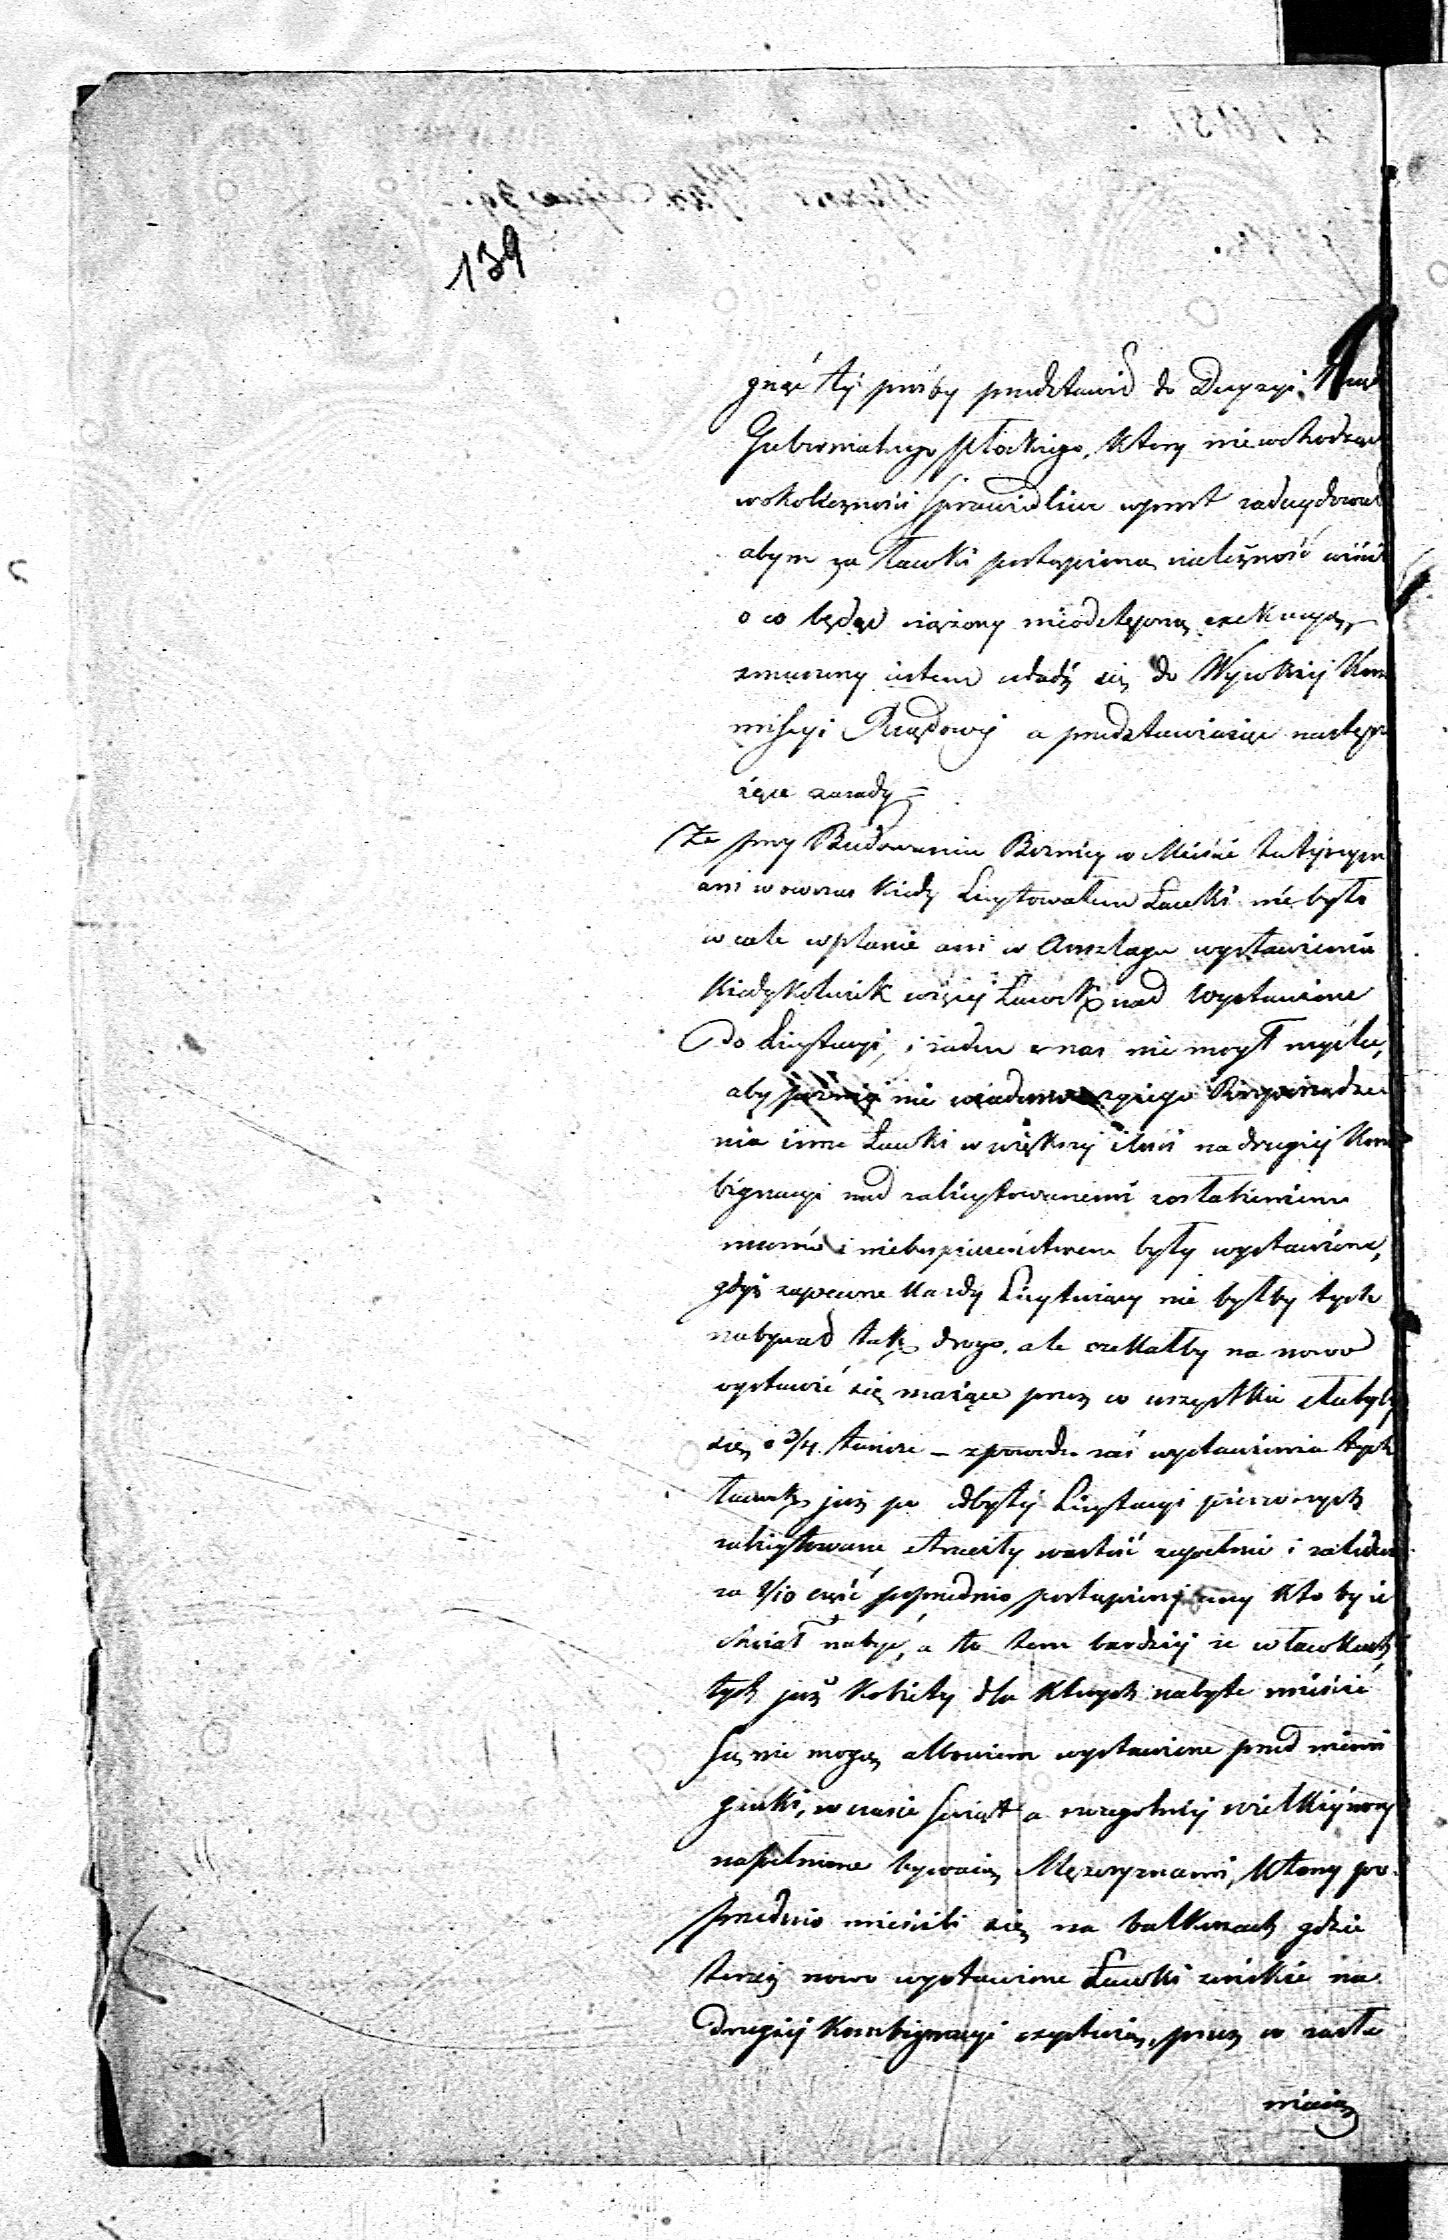 139
gnąć tej prośby przedstawił do Decyzyi Rządu
Gubernialnego Płockiego, Który niewchodząc
w okoliczności sprawiedliwe wprost zadecydował
abym za Ławki postąpioną należność wniósł
o co będąc ciążony nieodstępną exekucyą,
zmuszony jestem udadź się do Wysokiej Kom
missyi Rządowej a przedstawiając następu
iące zasady =
Że przy Budowaniu Boznicy w Mieście tutejszym
ani w owczas Kiedy Licytowałem Ławki nie było
wcale w planie ani w Anszlagu wystawienia
Kiedykolwiek więcej Ławek nad wystawione
do Licytacyi, i żaden z nas nie mógł myśleć,
aby nie wiadomo czyiego Rozporządze
nia inne Ławki w większej ilości na drugiej Kom
bignacyi nad zalicytowanemi zosłabieniem
murów i niebezpieczeństwem były wystawione,
gdyż zapewne Każdy Licytuiący nie byłby tych
nabywał tak drogo, ale czekałby na nowo
wystawić się maiące przez co wszystkie stałyby
się o 3/4 tańsze – zpowodu zaś wystawienia tych
Ławek już po odbytej Licytacyi pierwszych
zalicytowane straciły wartość zupełnie i zaledwie
za 1/10 część poprzednio postąpionej ceny kto by je
chciał nabyć, a to tem bardziej że w ławkach
tych już Kobiety dla Których nabyte mieścić
się nie mogą albowiem wystawione przed niemi
ganki, w czasie Świąt a szczególniej wielkiejnocy
napełnione bywaią Męszczyznami, Którzy po-
przednio mieścili się na balkonach gdzie
teraz nowo wystawione Ławki żeńskie na
drugiej Kombignacyi exystuią, przez co zasła
niaią